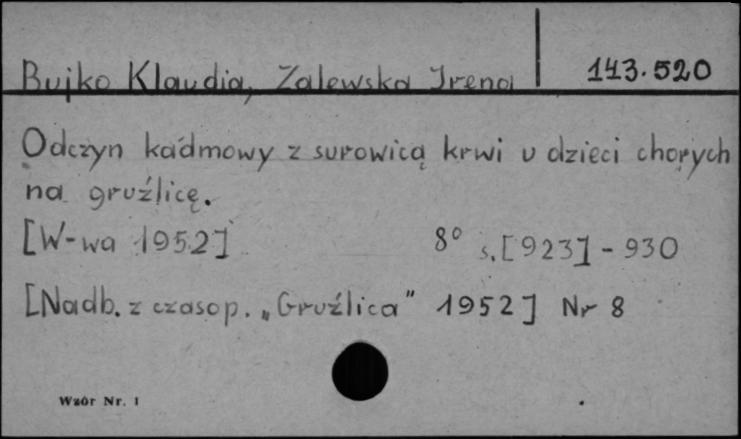 Bujko Klaudia, Zalewska Irena 143.520
Odczyn kadmowy z surowicą krwi u dzieci chorych
na gruźlicę.
[W-wa 1952] 8° s. [923] - 930
[Nadb. z czasop. „Gruźlica" 1952] Nr 8
Wzór Nr. 1